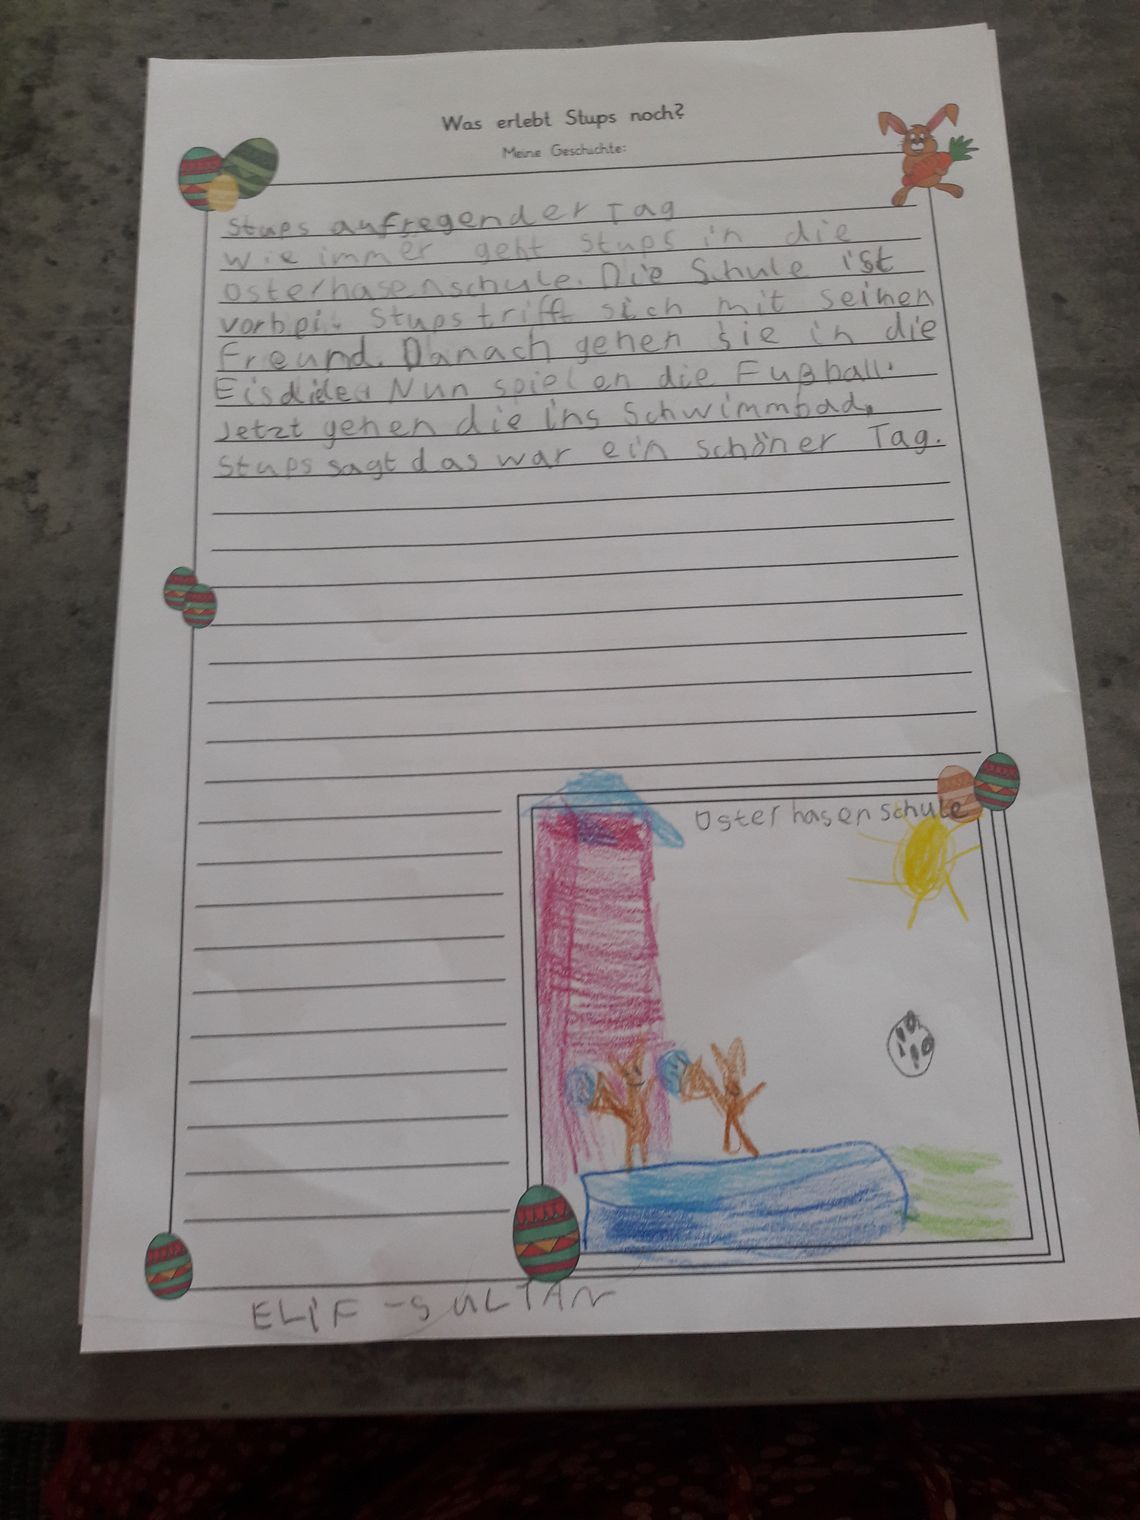 Was erlebt Stups noch?
Meine Geschichte:
Stups aufregender Tag
wie immer geht Stups in die
Osterhasenschule. Die Schule ist
vorbei. Stups trifft sich mit seinen
Freund. Danach gehen sie in die
Nun spielen die Fußball.
Jetzt gehen die ins Schwimmbad.
Stups sagt das war ein schöner Tag.
Osterhasenschule
ELiF-SULTAN